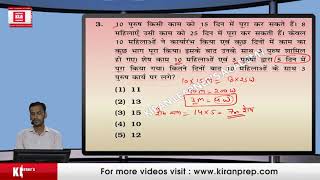 3. 10 पुरुष किसी काम को 15 दिन में पूरा कर सकते हैं। 8
महिलाएँ उसी काम को 25 दिन में पूरा कर सकती हैं। केवल
10 महिलाओं ने कार्यारंभ किया एवं कुछ दिनों में काम का
कुछ भाग पूरा किया। इसके बाद उनके साथ 3 पुरुष शामिल
हो गए। शेष काम 10 महिलाओं एवं 3 पुरुषों द्वारा 5 दिन में
पूरा किया गया। कितने दिनों बाद 10 महिलाओं के साथ 3
पुरुष कार्य पर लगे?
10 × 15 M = 8 × 25 W
(1) 11
(2) 13
3M = 4W
(3) 15
= 14 × 5 = 70
(4) 10
(5) 12
For more videos visit : www.kiranprep.com